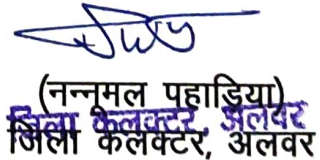 (नन्नूमल पहाड़िया)
जिला कलेक्टर, अलवर
जिला कलेक्टर, अलवर